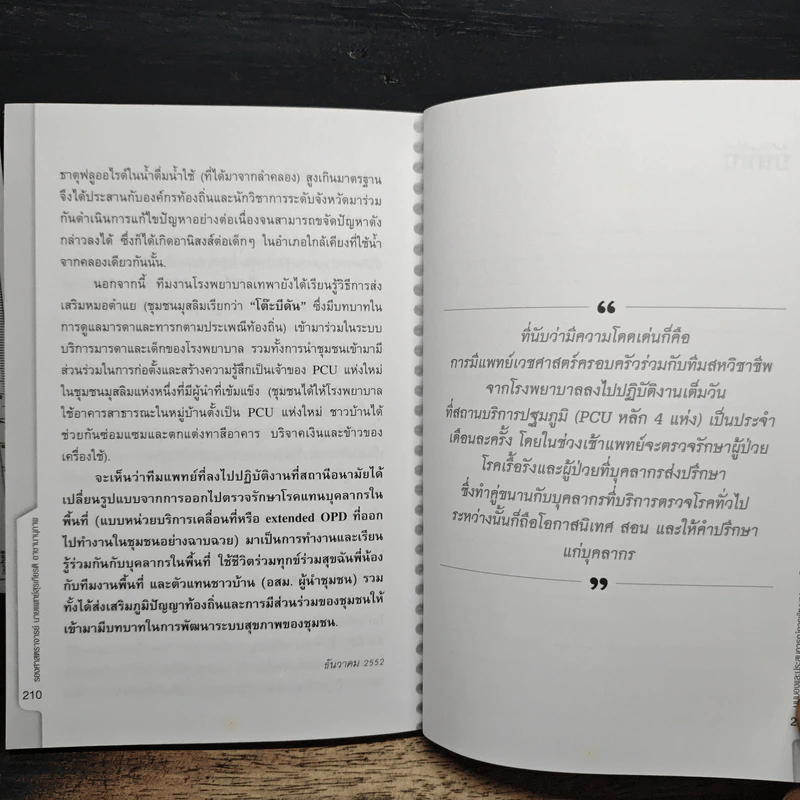 ธาตุฟลูออไรด์ในน้ำดื่มน้ำใช้ (ที่ได้มาจากลำคลอง) สูงเกินมาตรฐาน
จึงได้ประสานกับองค์กรท้องถิ่นและนักวิชาการระดับจังหวัดมาร่วม
กันดำเนินการแก้ไขปัญหาอย่างต่อเนื่องจนสามารถขจัดปัญหาดัง
กล่าวลงได้ ซึ่งก็ได้เกิดอานิสงส์ต่อเด็กๆ ในอำเภอใกล้เคียงที่ใช้น้ำ
จากคลองเดียวกันนั้น
นอกจากนี้ ทีมงานโรงพยาบาลเทพายังได้เรียนรู้วิธีการส่ง
เสริมหมอตำแย (ชุมชนมุสลิมเรียกว่า “โต๊ะบีดัน” ซึ่งมีบทบาทใน
การดูแลมารดาและทารกตามประเพณีท้องถิ่น) เข้ามาร่วมในระบบ
บริการมารดาและเด็กของโรงพยาบาล รวมทั้งการนำชุมชนเข้ามามี
ส่วนร่วมในการก่อตั้งและสร้างความรู้สึกเป็นเจ้าของ PCU แห่งใหม่
ในชุมชนมุสลิมแห่งหนึ่งที่มีผู้นำที่เข้มแข็ง (ชุมชนได้ให้โรงพยาบาล
ใช้อาคารสาธารณะในหมู่บ้านตั้งเป็น PCU แห่งใหม่ ชาวบ้านได้
ช่วยกันซ่อมแซมและตกแต่งทาสีอาคาร บริจาคเงินและข้าวของ
เครื่องใช้).
จะเห็นว่าทีมแพทย์ที่ลงไปปฏิบัติงานที่สถานีอนามัยได้
เปลี่ยนรูปแบบจากการออกไปตรวจรักษาโรคแทนบุคลากรใน
พื้นที่ (แบบหน่วยบริการเคลื่อนที่หรือ extended OPD ที่ออก
ไปทำงานในชุมชนอย่างฉาบฉวย) มาเป็นการทำงานและเรียน
รู้ร่วมกันกับบุคลากรในพื้นที่ ใช้ชีวิตร่วมทุกข์ร่วมสุขฉันพี่น้อง
กับทีมงานพื้นที่ และตัวแทนชาวบ้าน (อสม. ผู้นำชุมชน) รวม
ทั้งได้ส่งเสริมภูมิปัญญาท้องถิ่นและการมีส่วนร่วมของชุมชนให้
เข้ามามีบทบาทในการพัฒนาระบบสุขภาพของชุมชน.
ธันวาคม 2552
รองศาสตราจารย์ นายแพทย์สุรเกียรติ อาชานานุภาพ
210
“
ที่นับว่ามีความโดดเด่นก็คือ
การมีแพทย์เวชศาสตร์ครอบครัวร่วมกับทีมสหวิชาชีพ
จากโรงพยาบาลลงไปปฏิบัติงานเต็มวัน
ที่สถานบริการปฐมภูมิ (PCU หลัก 4 แห่ง) เป็นประจำ
เดือนละครั้ง โดยในช่วงเช้าแพทย์จะตรวจรักษาผู้ป่วย
โรคเรื้อรังและผู้ป่วยที่บุคลากรส่งปรึกษา
ซึ่งทำคู่ขนานกับบุคลากรที่บริการตรวจโรคทั่วไป
ระหว่างนั้นก็ถือโอกาสนิเทศ สอน และให้คำปรึกษา
แก่บุคลากร
”